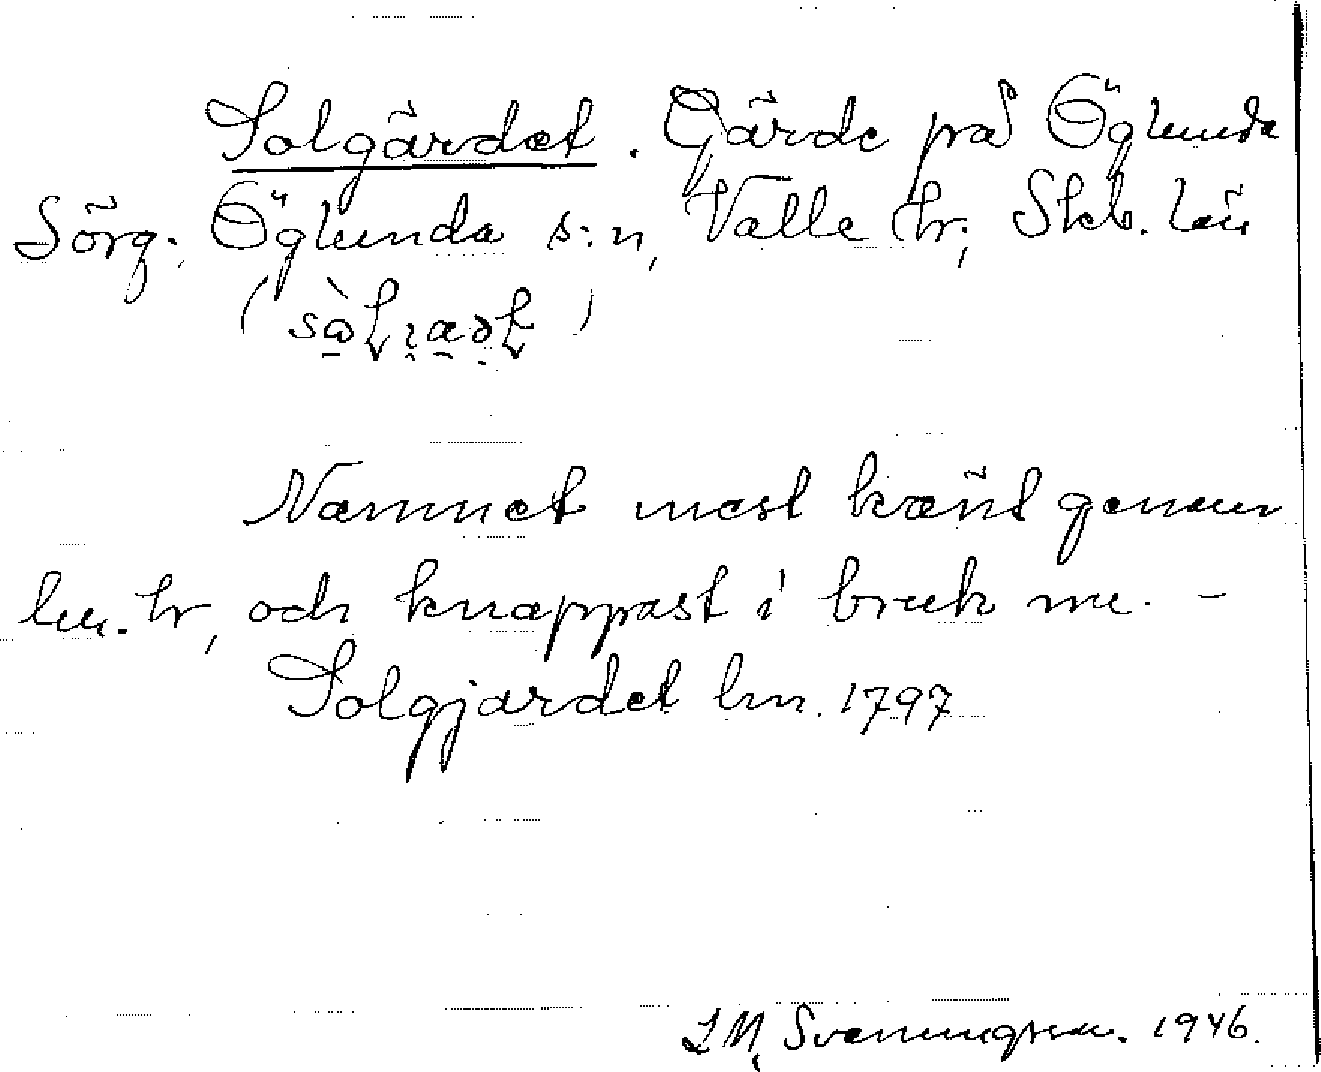 Solgärdet. Gärde på Öglunda
Sörg. Öglunda s:n, Valle hr, Skb. län
Namnet mest känt genom
lm. hr, och knappast i bruk nu. -
Solgjardet lm. 1797
I M, Svenungsson. 1946.